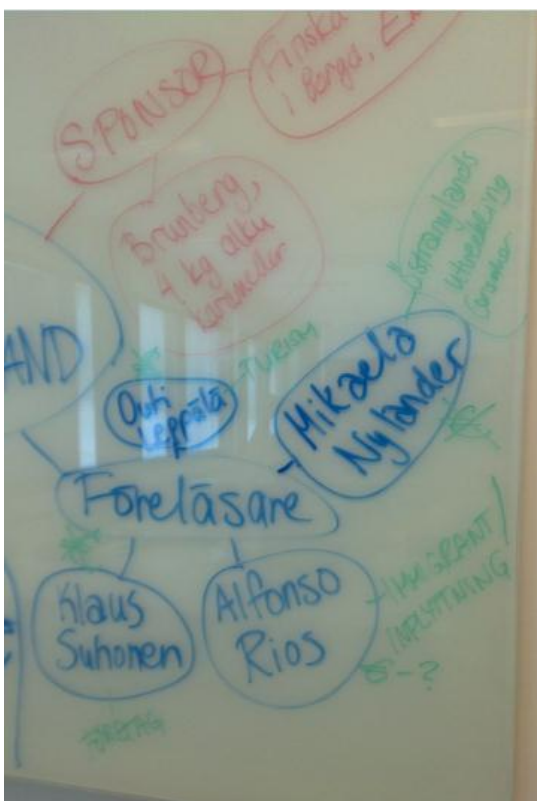 SPONSOR
Finska
i Borgå, E
Brunberg,
4 kg alku
karameller
Östranylands
utveckling
AND
TURISM
Outi
Leppälä
Mikaela
Nylander
Föreläsare
Klaus
Suhonen
Alfonso
Rios
IMMIGRANT/
INFLYTTNING
- ?
FÖRETAG